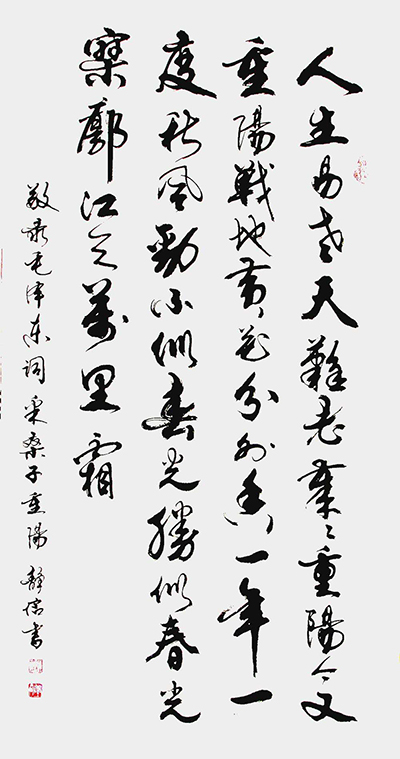 人生易老天難老歲〻重陽今又
重陽戰地黄花分外香一年一
度秋風勁不似春光勝似春光
寥廓江天萬里霜
敬录毛泽东词采桑子重陽 静书